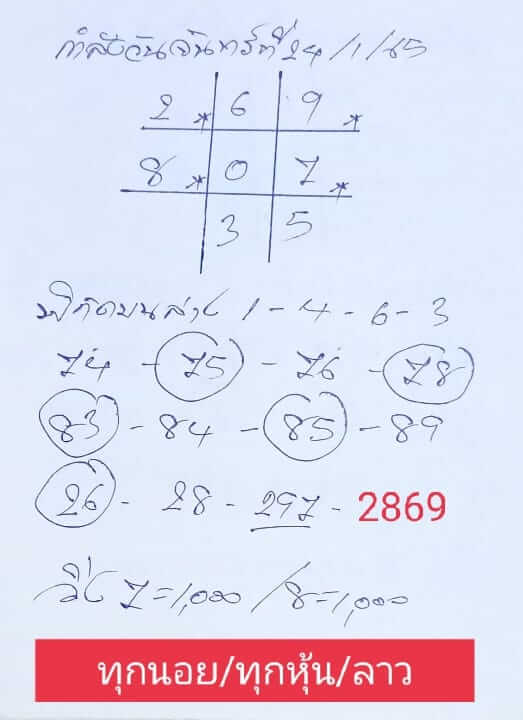 กำลังวันจันทร์ที่ 24/1/65
2 * 6 9 *
8 * 0 7 *
3 5
พิกัดบนล่าง 1 - 4 - 6 - 3
74 - 75 - 76 - 78
83 - 84 - 85 - 89
26 - 28 - 297 - 2869
วิ่ง 7 = 1,000 / 8 = 1,000
ทุกนอย/ทุกหุ้น/ลาว